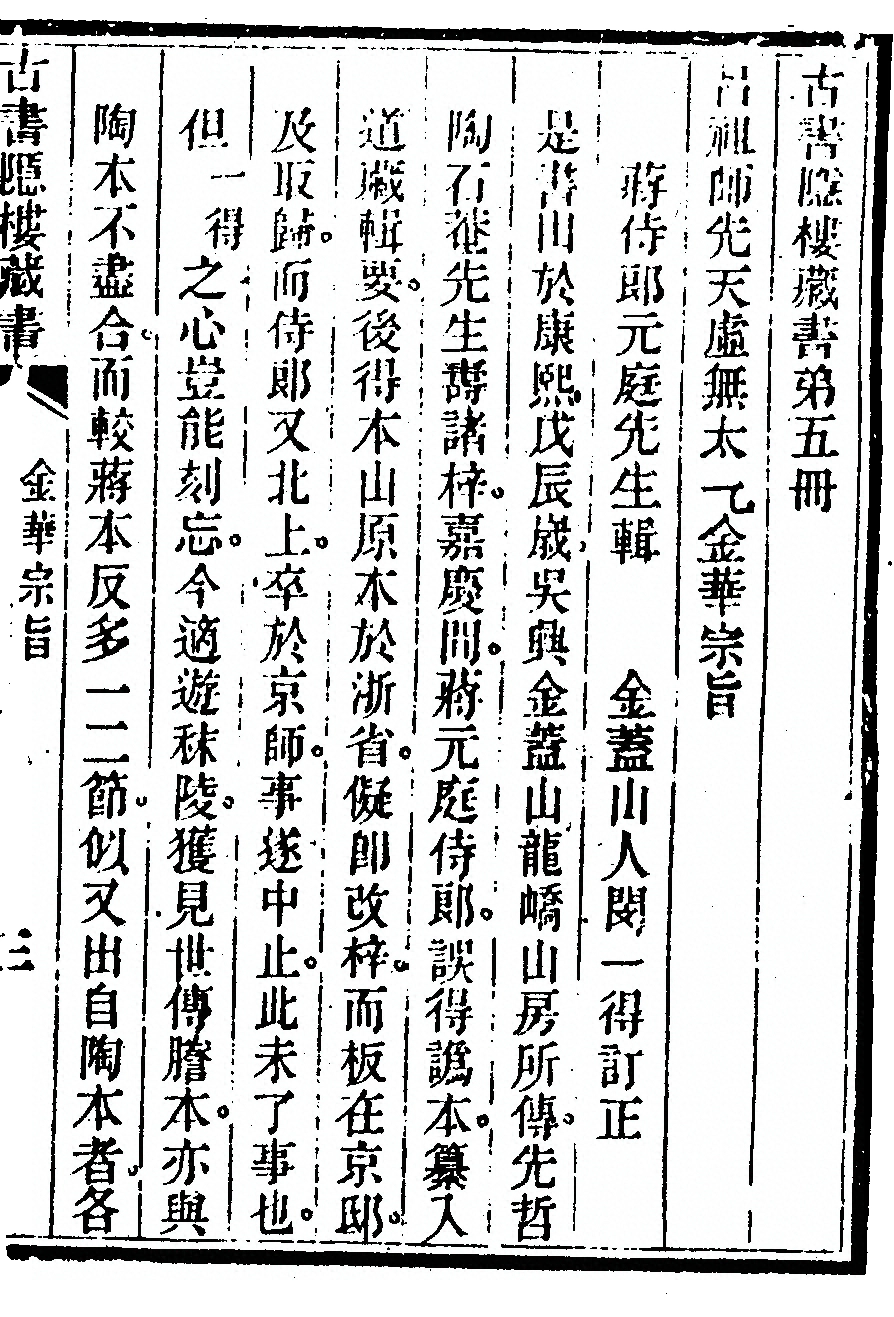 古書隱樓藏書第五冊
呂祖師先天虛無太乙金華宗旨
蔣侍郎元庭先生輯　金蓋山人閔一得訂正
是書出於康熙戊辰歲吳興金蓋山龍嶠山房所傳。先哲
陶石菴先生壽諸梓。嘉慶間。蔣元庭侍郎。誤得譌本。纂入
道藏輯要。後得本山原本於浙省。儗卽改梓。而板在京邸。
及取歸。而侍郎又北上。卒於京師。事遂中止。此未了事也。
但一得之心豈能刻忘。今適遊秣陵。獲見世傳謄本。亦與
陶本不盡合。而較蔣本反多一二節。似又出自陶本者。各
古書隱樓藏書
金華宗旨
三